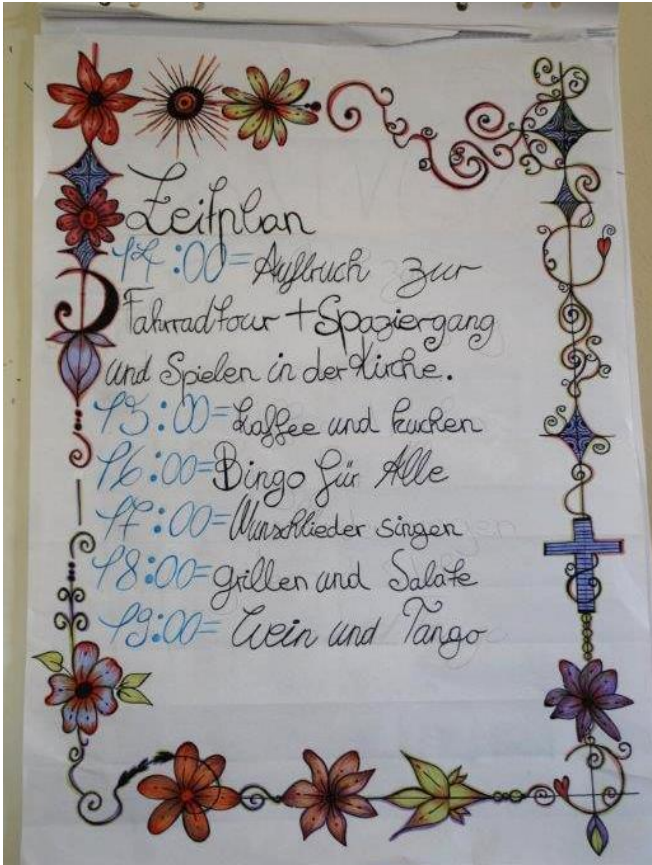 Zeitplan
14:00= Aufbruch zur
Fahrradtour + Spaziergang
und Spielen in der Kirche.
15:00= Kaffee und Kuchen
16:00= Bingo für Alle
17:00= Wunschlieder singen
18:00= grillen und Salate
19:00= Wein und Tango